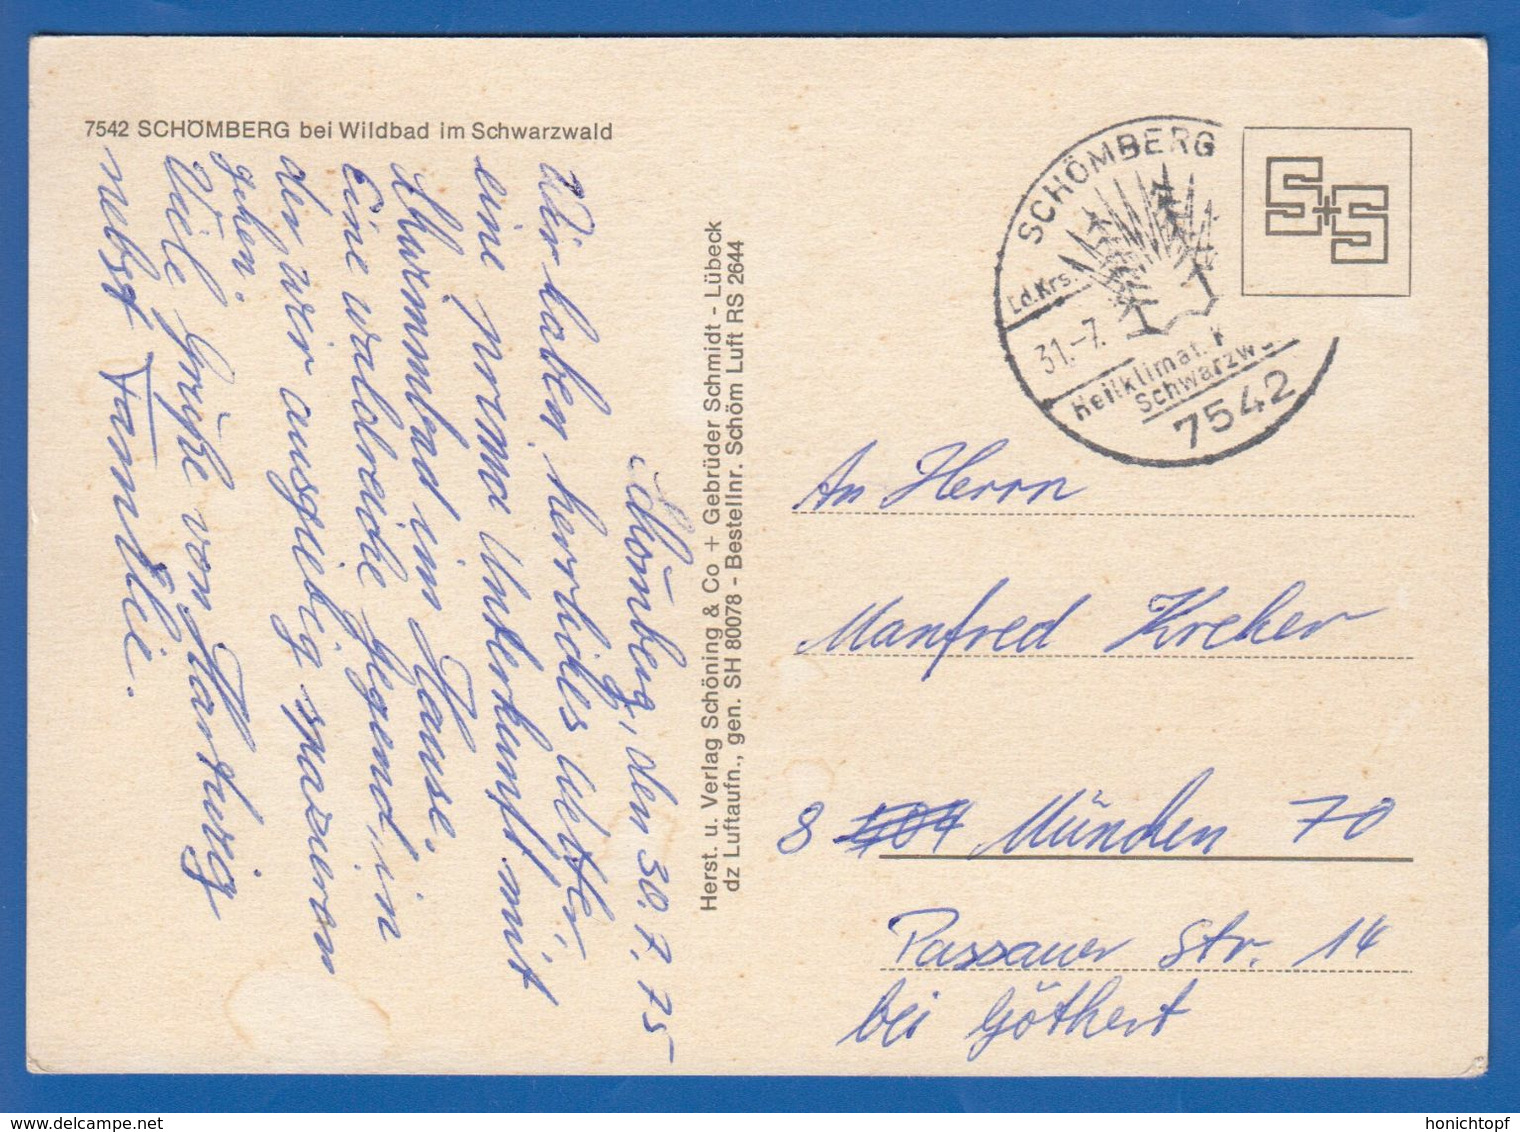 7542 SCHÖMBERG bei Wildbad im Schwarzwald
Schömberg, den 30.7.75
Wir haben herrliches Wetter,
eine prima Unterkunft mit
Schwimmbad im Hause.
Eine waldreiche Gegend, in
der wir ausgiebig spazieren
gehen.
Viele Grüße von Hartwig
nebst Familie.
Herst. u. Verlag Schöning & Co + Gebrüder Schmidt - Lübeck
dz Luftaufn., gen. SH 80078 - Bestellnr. Schöm Luft RS 2644
SCHÖMBERG
Ld.Krs.
31.-7.
Heilklimat. K
Schwarzwa
7542
S+S
An Herrn
Manfred Kreher
8 München 70
Passauer Str. 14
bei Göthert
honichtopf